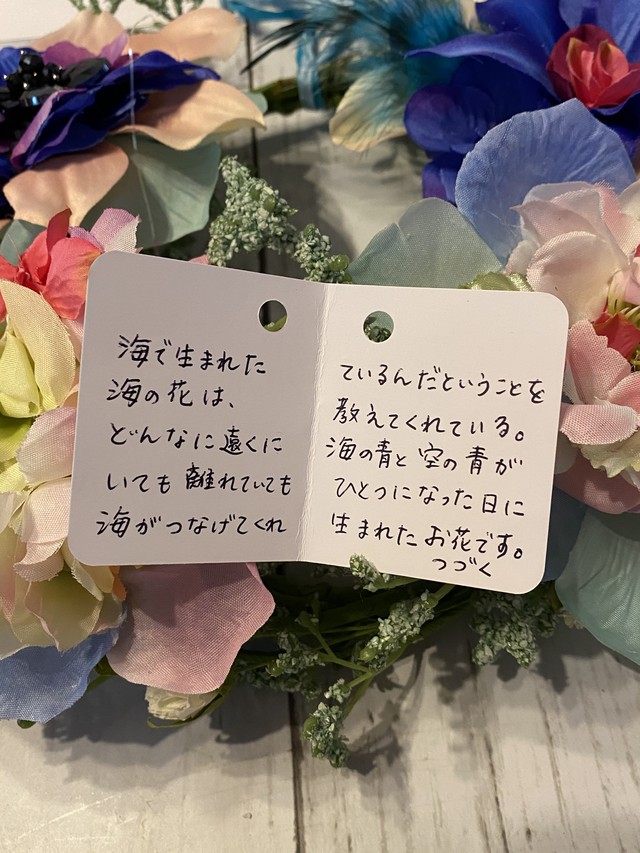 海で生まれた
海の花は、
どんなに遠くに
いても離れていても
海がつなげてくれ
ているんだということを
教えてくれている。
海の青と空の青が
ひとつになった日に
生まれたお花です。
つづく